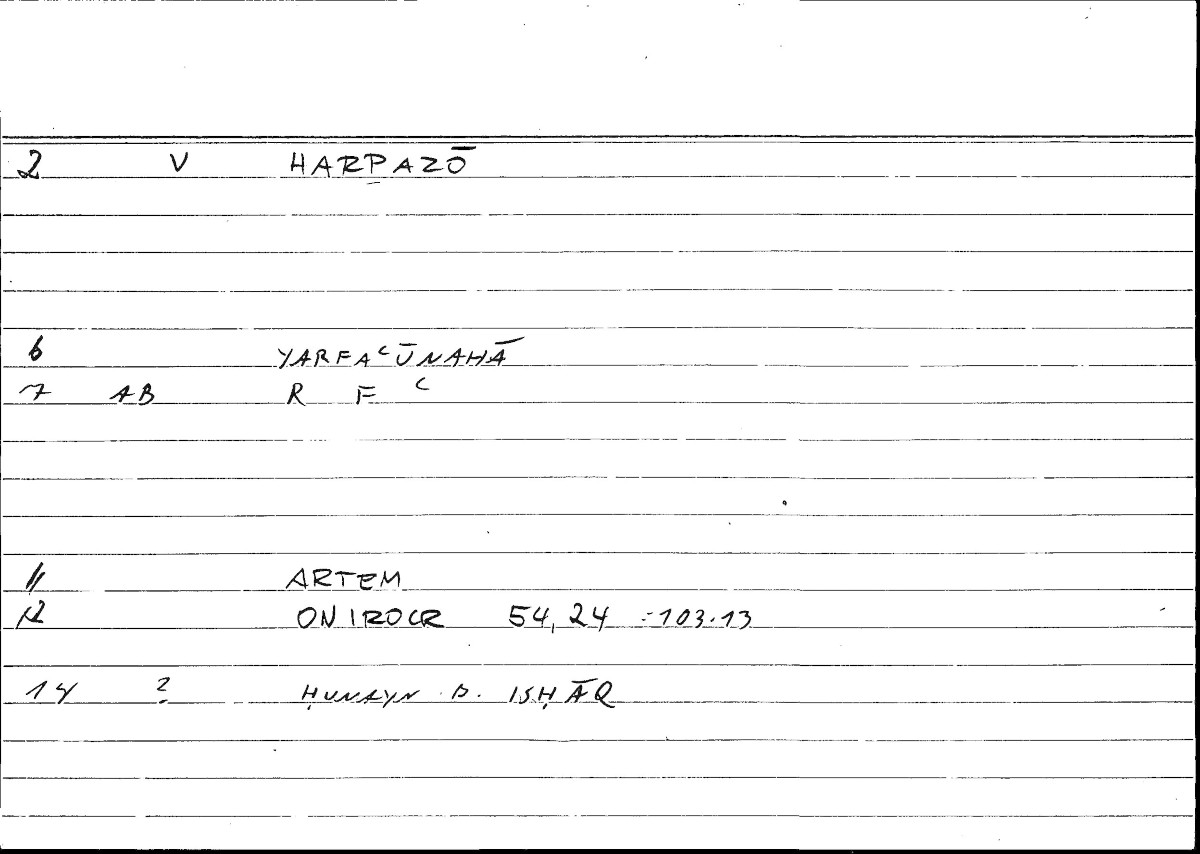 2 V HARPAZŌ
6 YARFAᶜŪNAHĀ
7 AB R F ᶜ
11 ARTEM
12 ONIROCR 54,24 = 103.13
14 ? ḤUNAYN B. ISḤĀQ